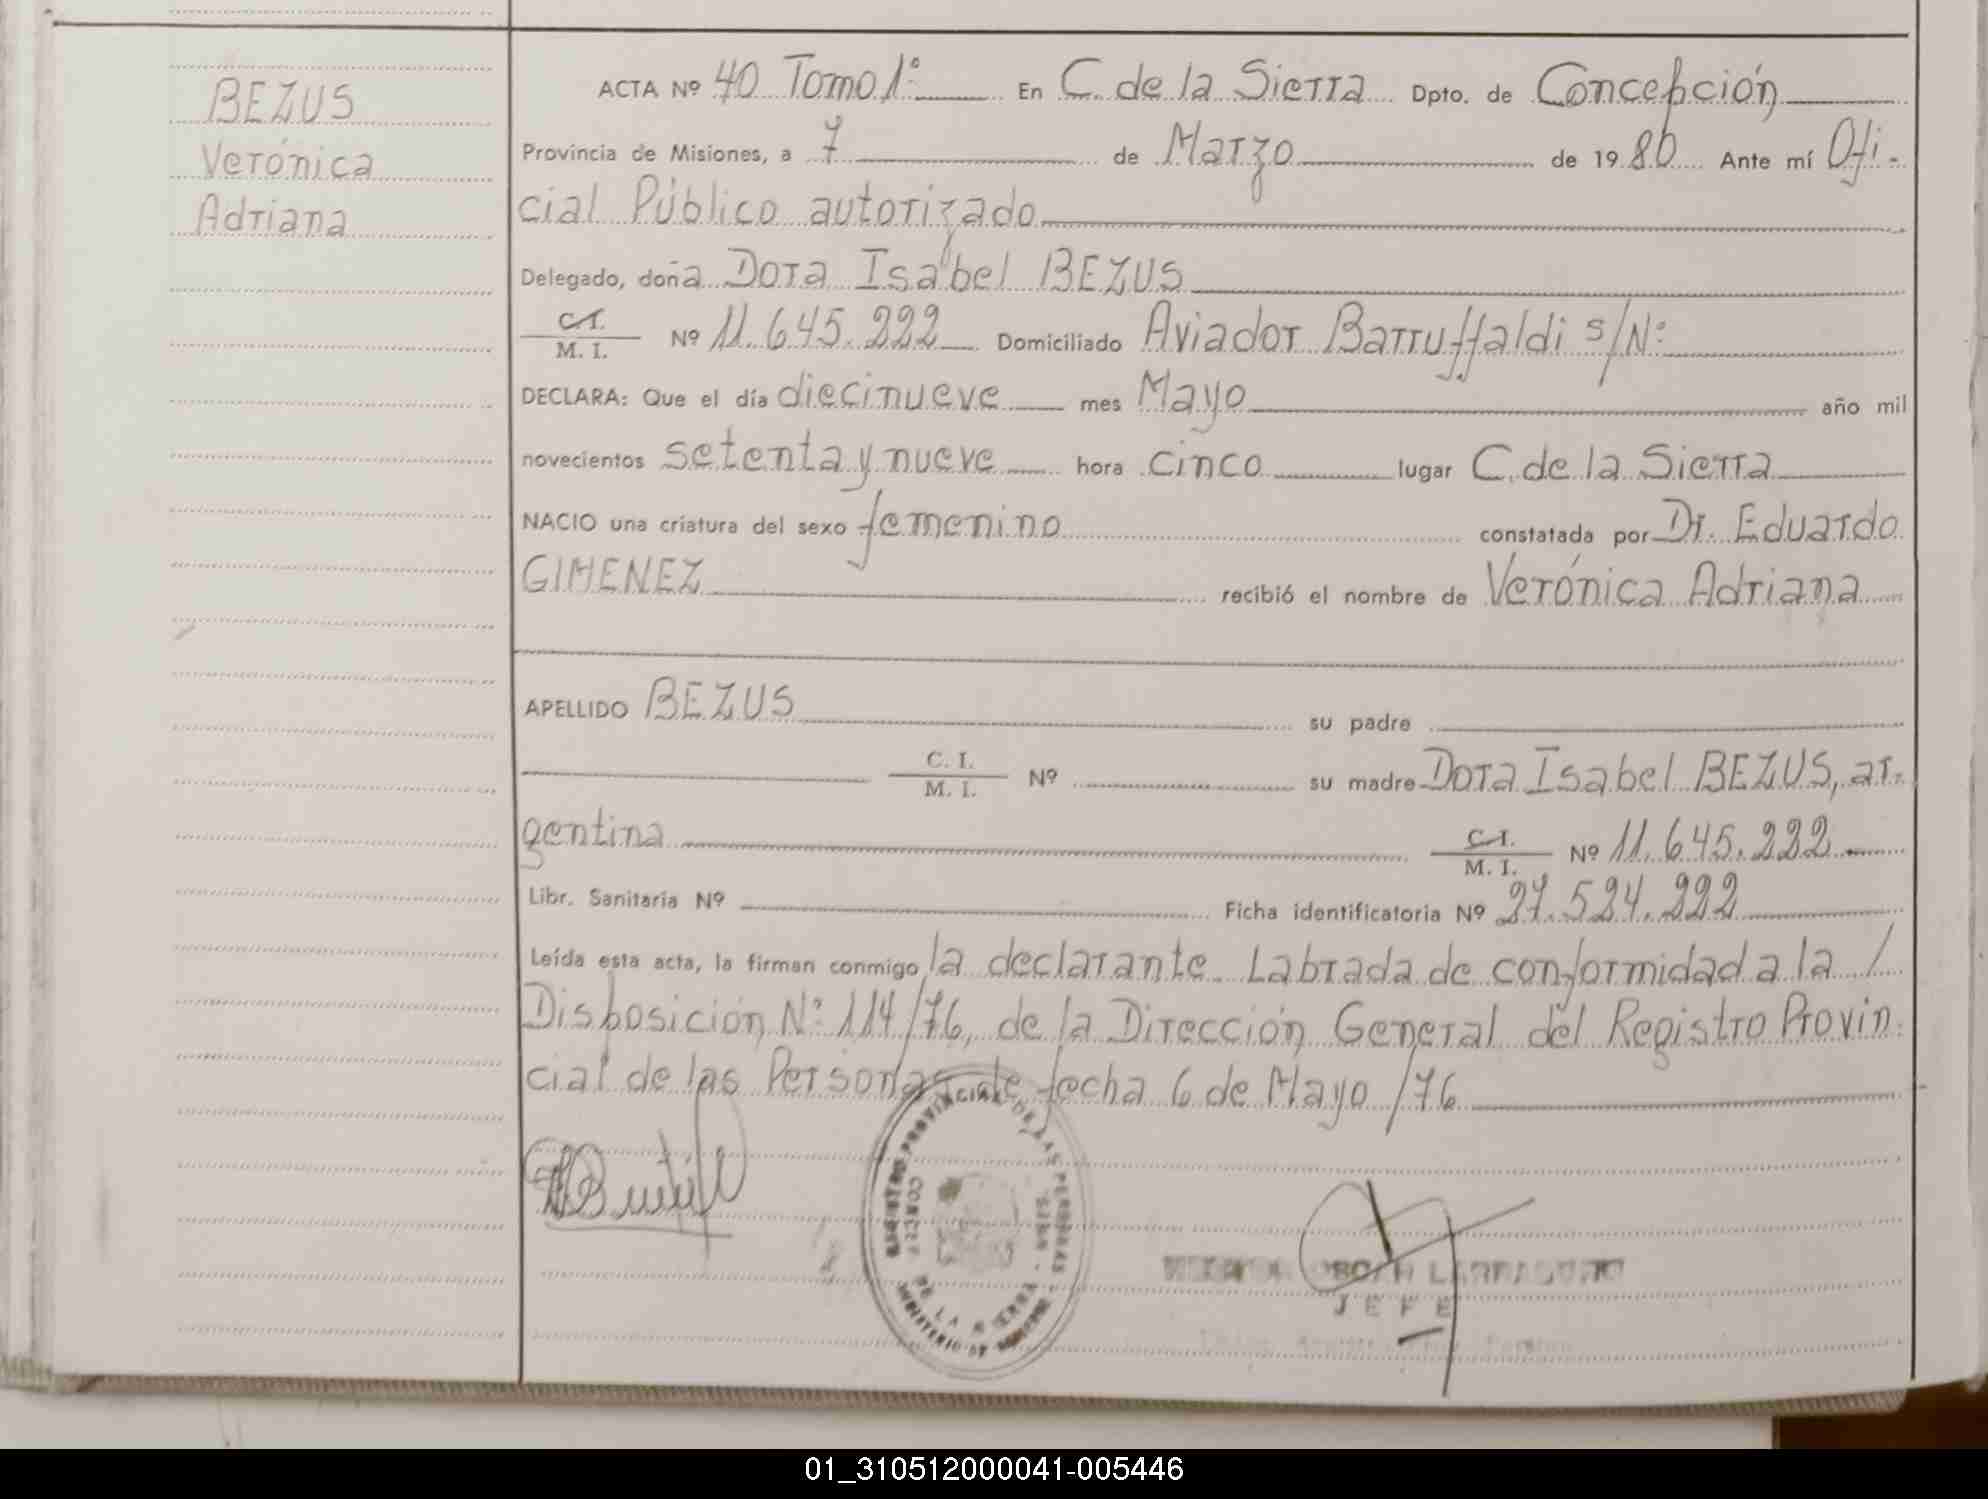 BEZUS
Verónica
Adriana
ACTA Nº 40 Tomo 1º En C. de la Sierra Dpto. de Concepción
Provincia de Misiones, a 7 de Marzo de 1980 Ante mí Ofi-
cial Público autorizado
Delegado, doña Dora Isabel BEZUS
C. I.
M. I. Nº 11.645.222 Domiciliado Aviador Barruffaldi s/Nº
DECLARA: Que el día diecinueve mes Mayo año mil
novecientos setenta y nueve hora cinco lugar C. de la Sierra
NACIO una criatura del sexo femenino constatada por Dr. Eduardo
GIMENEZ recibió el nombre de Verónica Adriana
APELLIDO BEZUS su padre
C. I.
M. I. Nº su madre Dora Isabel BEZUS, ar-
gentina C. I.
M. I. Nº 11.645.222
Libr. Sanitaria Nº Ficha identificatoria Nº 27.524.222
Leída esta acta, la firman conmigo la declarante. Labrada de conformidad a la /
Disposición Nº 114/76, de la Dirección General del Registro Provin-
cial de las Personas de fecha 6 de Mayo /76
REGISTRO PROVINCIAL DE LAS PERSONAS
DE LA SIERRA
MINISTERIO DE
JEFE
01_310512000041-005446